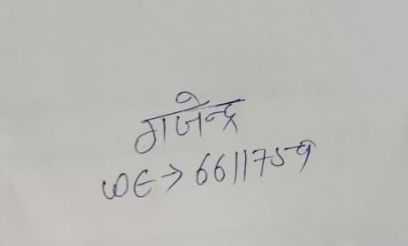 गजेन्द्र
WE→ 6611759